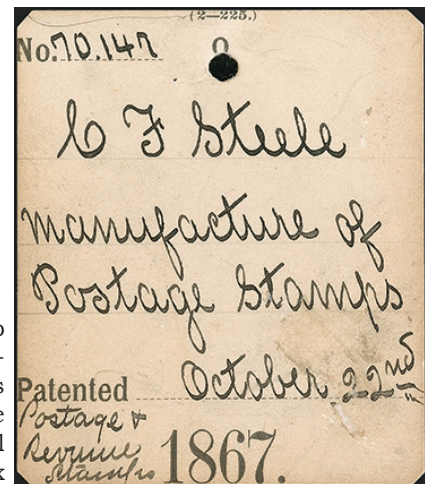 (2—225.)
No. 70.147
C F Steele
manufacture of
Postage Stamps
October 22nd
Patented
Postage &
Revenue
Stamps
1867.